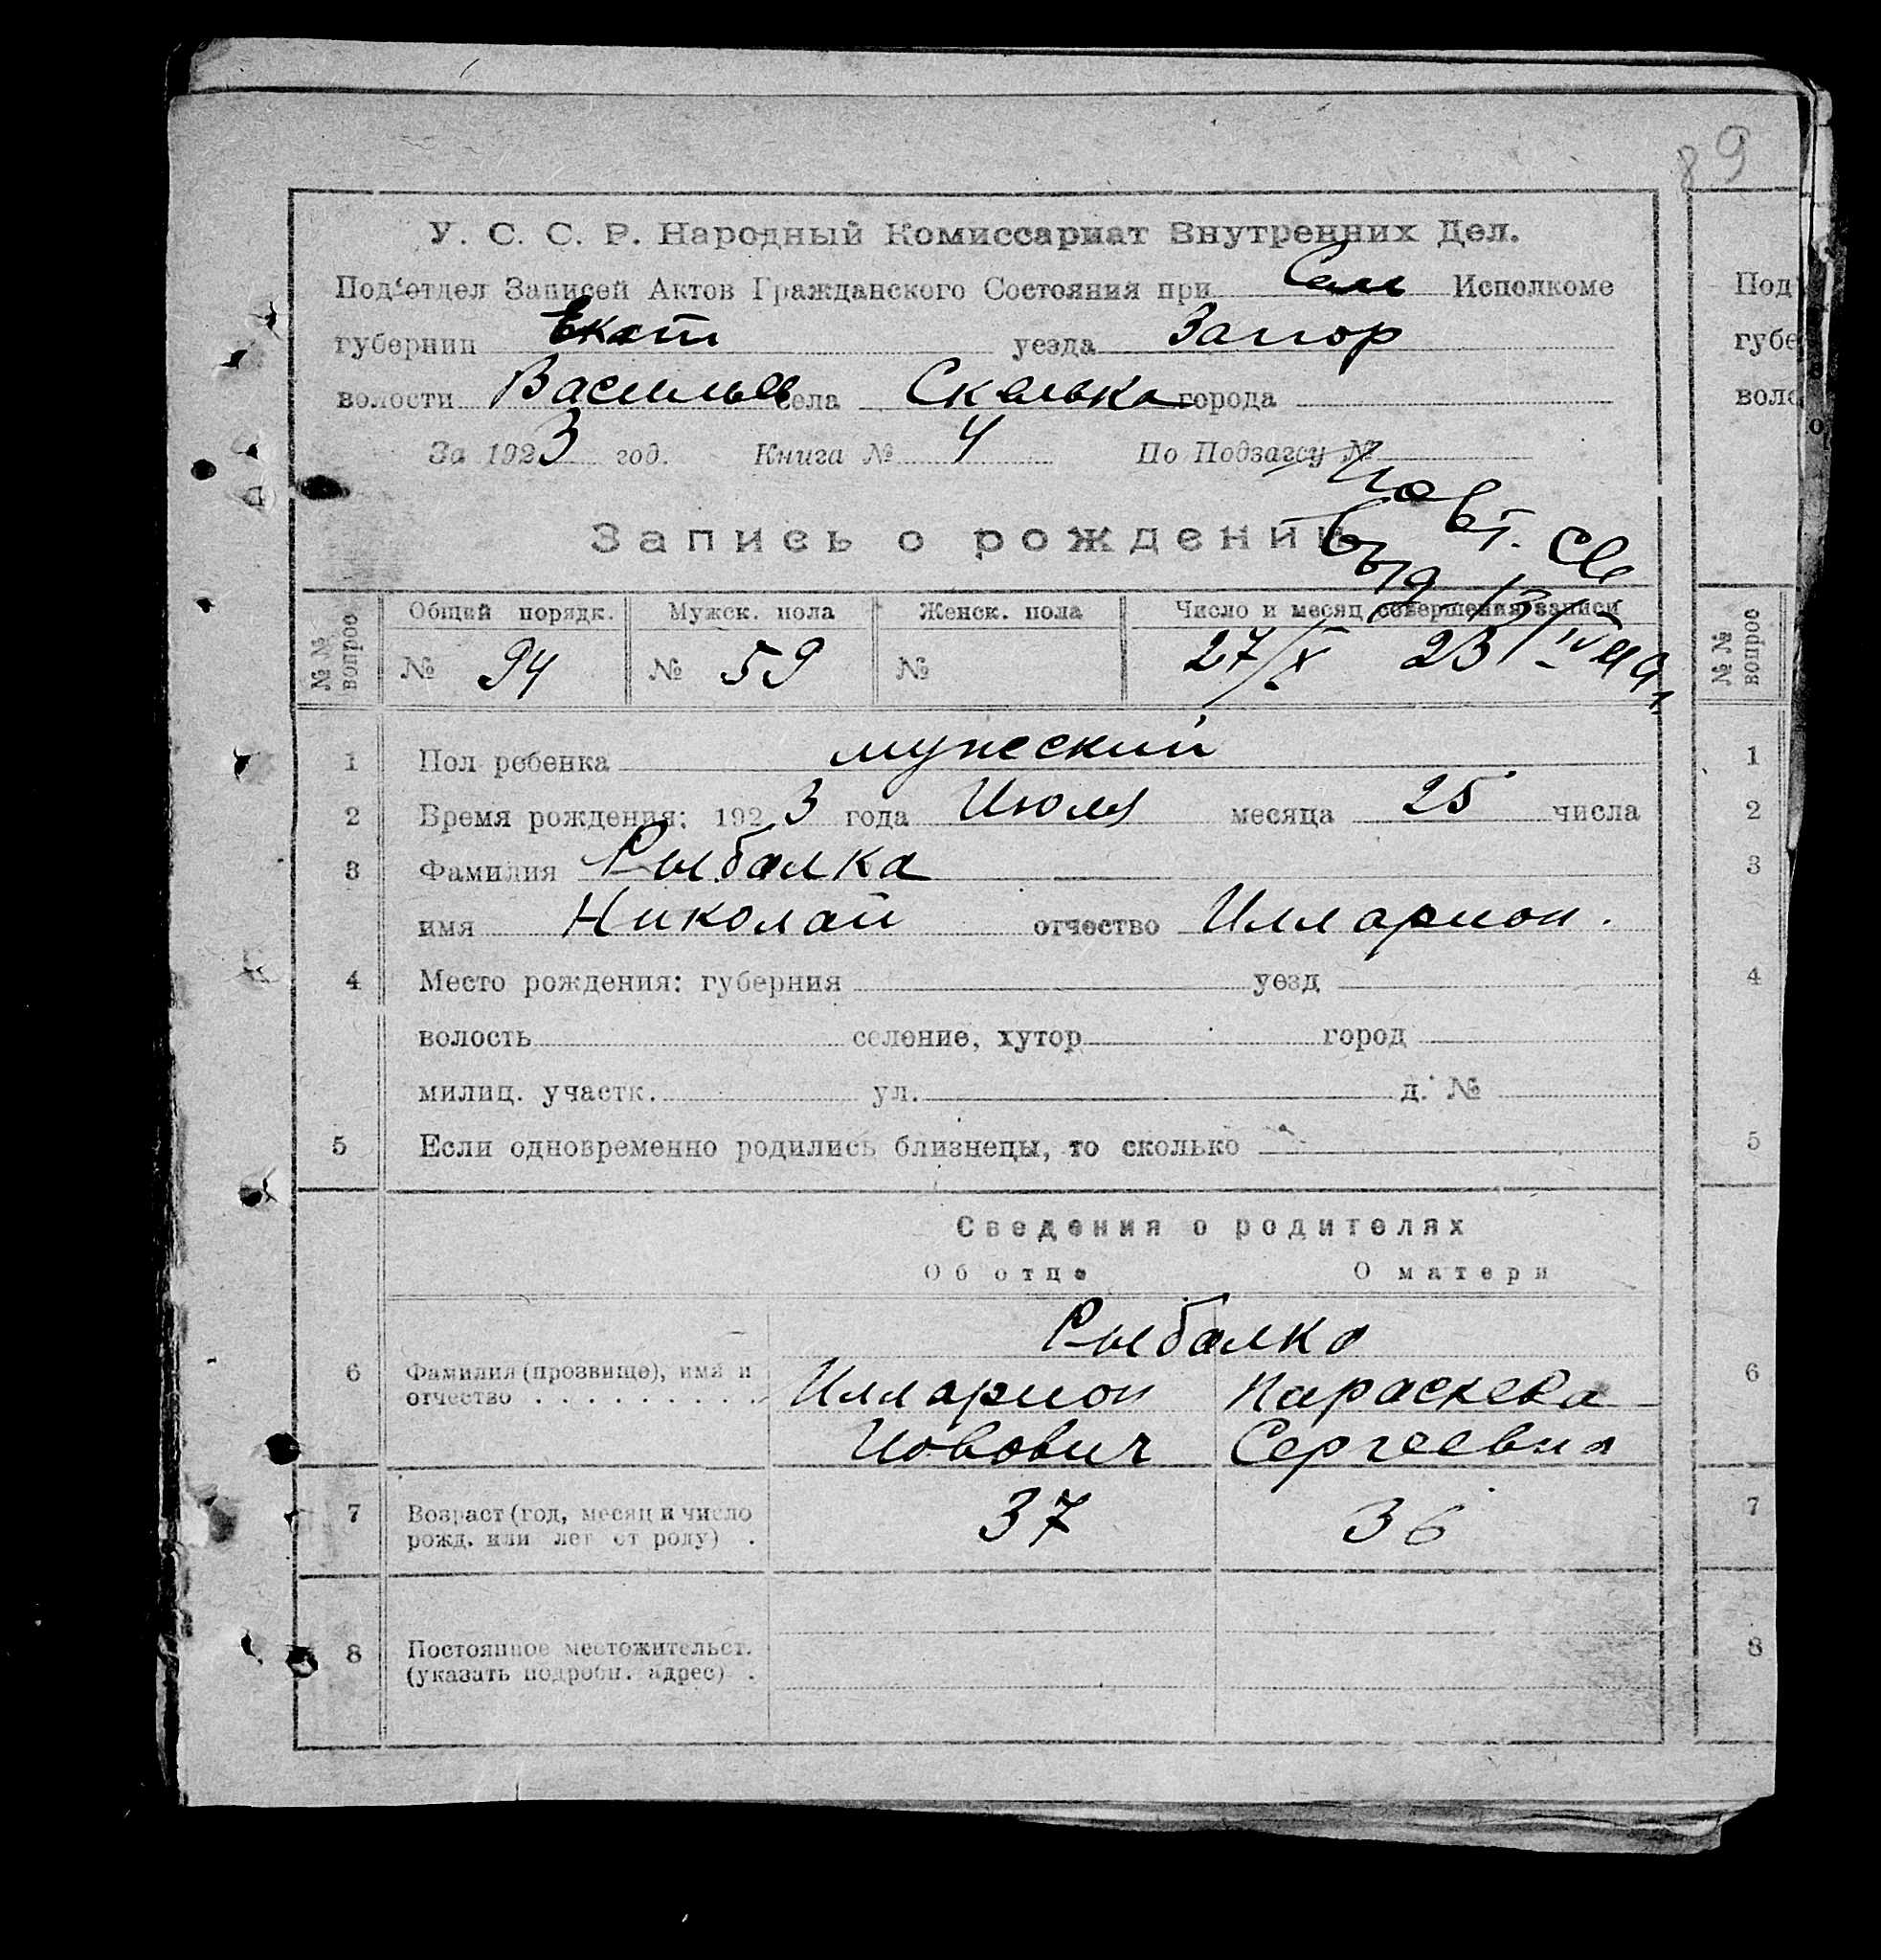 89
У. С. С. Р. Народный Комиссариат Внутренних Дел.
Под'отдел Записей Актов Гражданского Состояния при Сель Исполкоме
губернии Екат уезда Запор
волости Васильев села Скелька города
За 1923 год. Книга № 4 По Подзагсу №
Повт. св
выд
Запись о рождении
№№ вопрос Общей порядк. Мужск. пола Женск. пола Число и месяц совершения записи
№ 94 № 59 № 27/X 23
1 Пол ребенка мужеский
2 Время рождения: 1923 года Июля месяца 25 числа
3 Фамилия Рыбалка
имя Николай отчество Илларион.
4 Место рождения: губерния уезд
волость селение, хутор город
милиц. участк. ул. д. №
5 Если одновременно родились близнецы, то сколько
Сведения о родителях
Об отце О матери
Рыбалка
6 Фамилия (прозвище), имя и Илларион Параскева
отчество . . . . . . . . . Иовович Сергеевна
7 Возраст (год, месяц и число 37 36
рожд. или лет от роду) .
8 Постоянное местожительст.
(указать подробн. адрес) .
Под
губе
воло
№№ вопрос
1
2
3
4
5
6
7
8